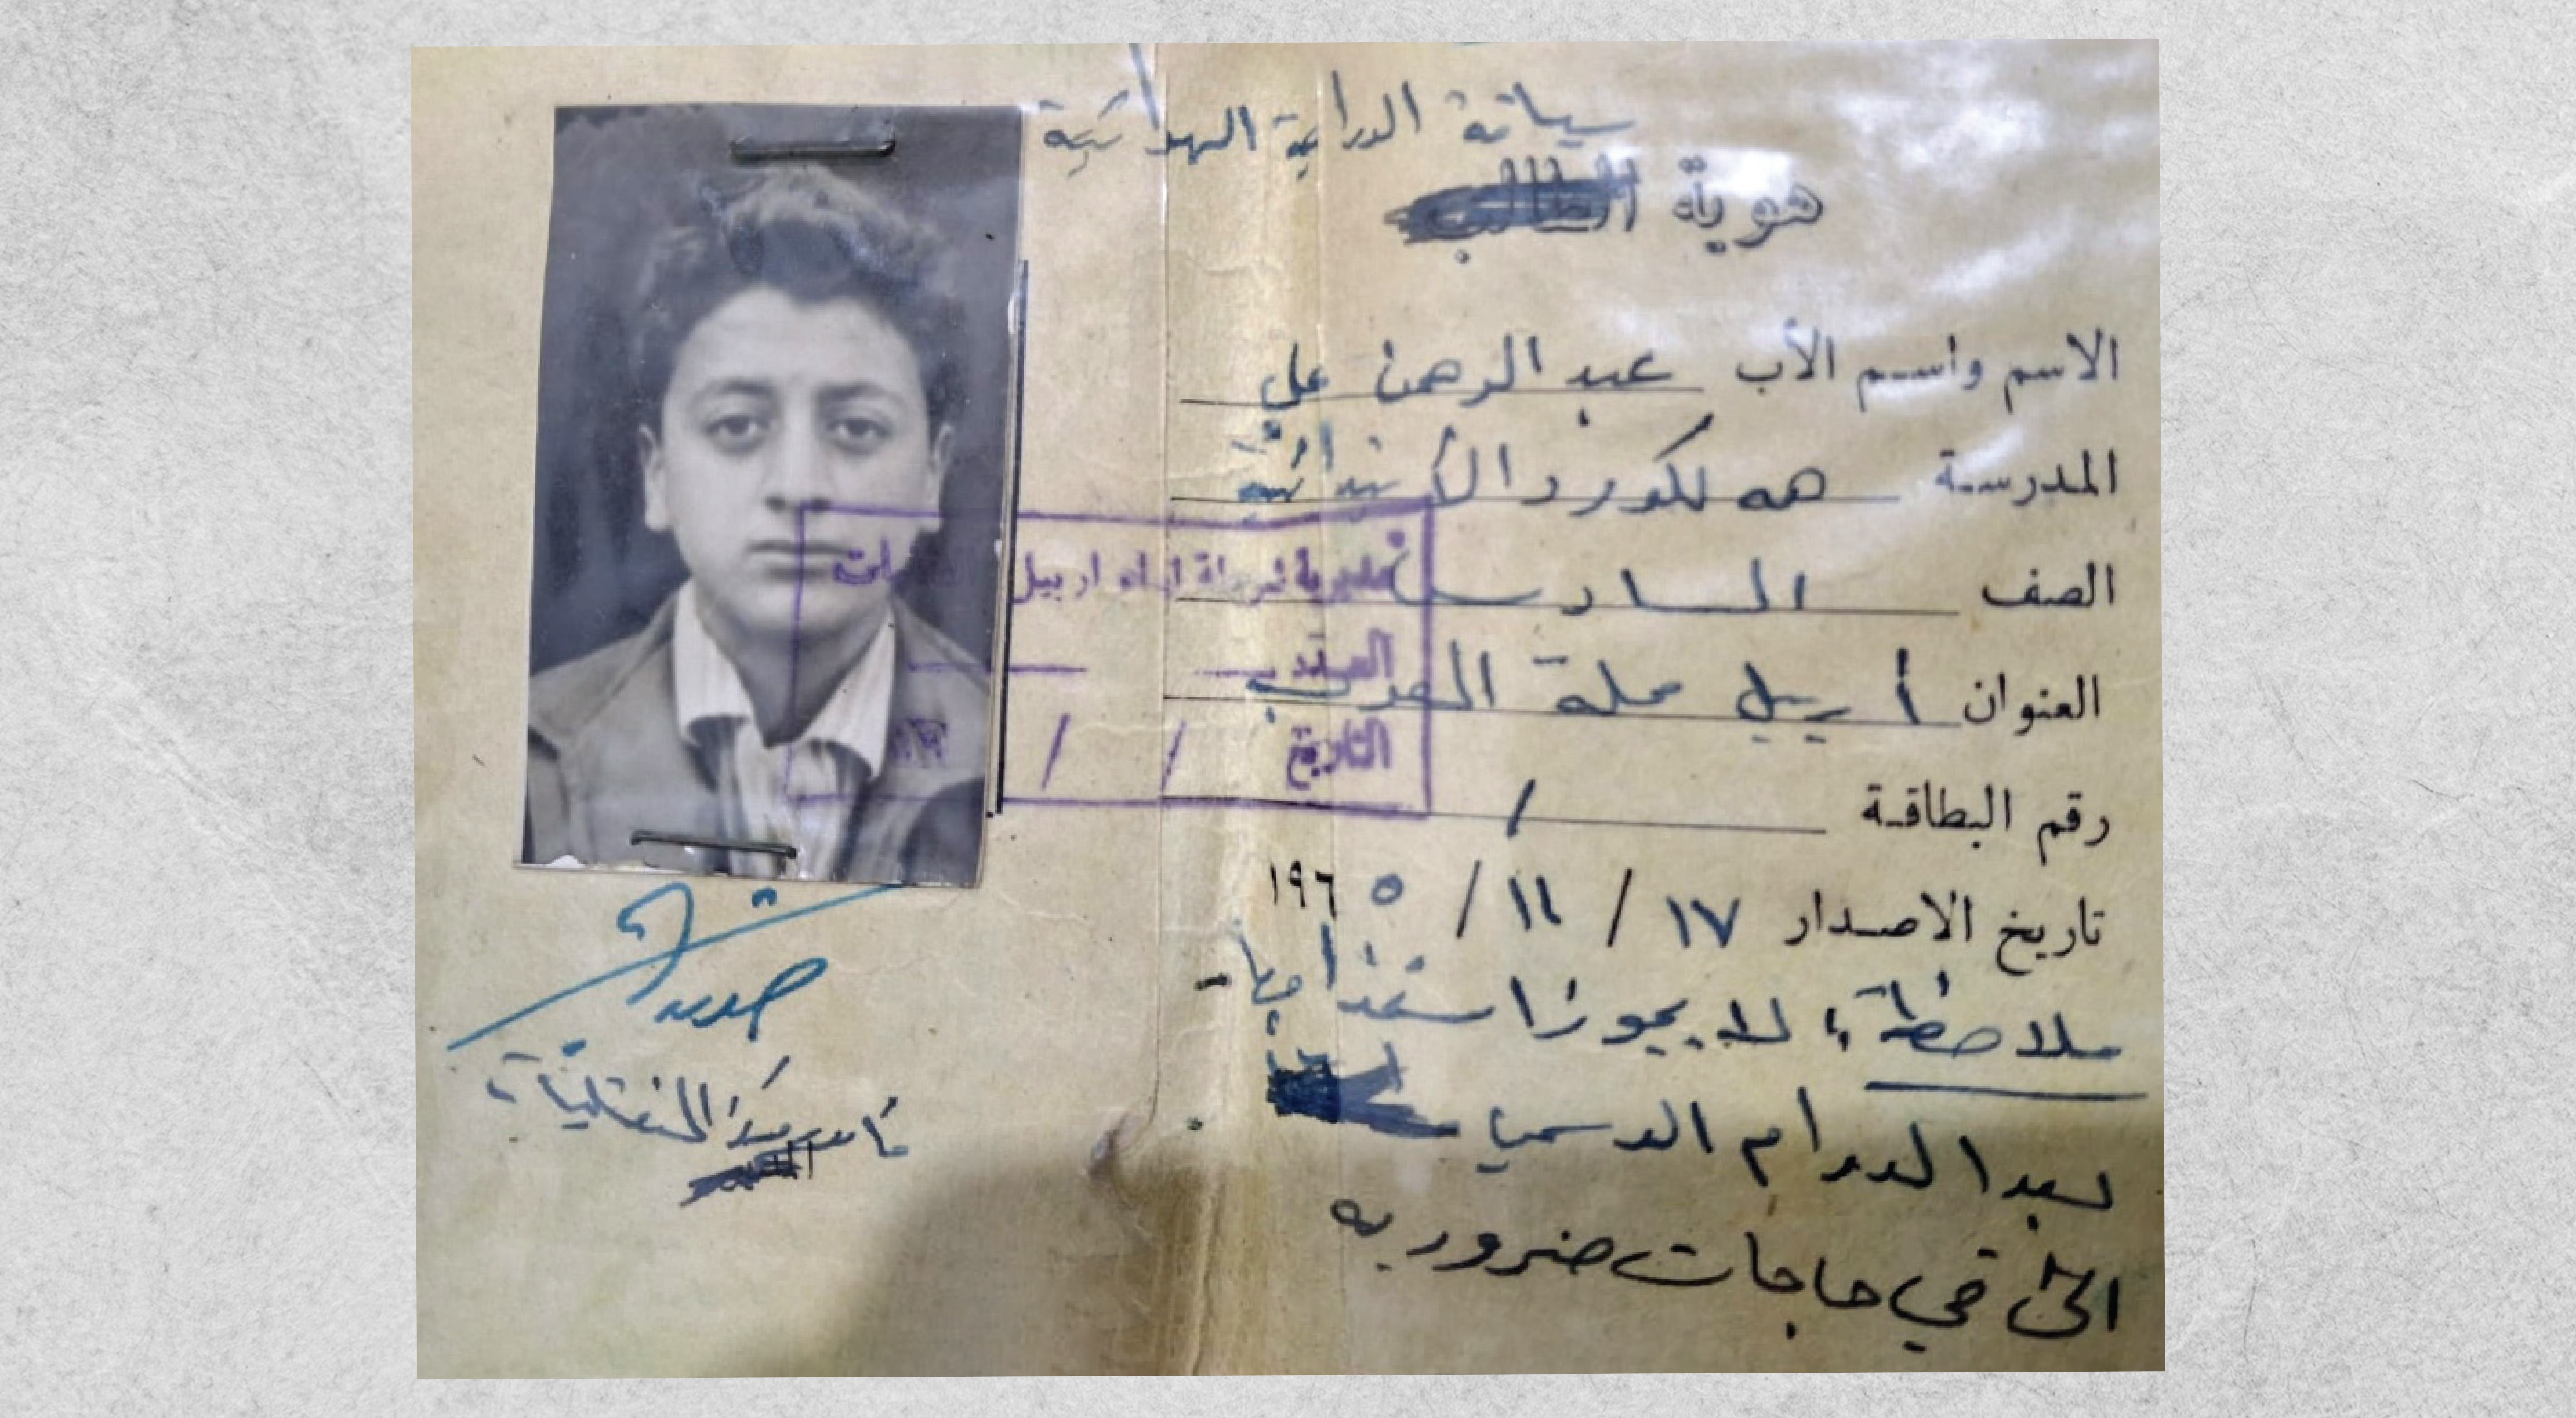 سياقة الدراجة الهوائية
هوية الطالب
الاسم واسم الأب عبد الرحمن علي
المدرسة هه لكورد الأبتدائية
الصف السادس
العنوان أربيل محلة العرب
رقم البطاقة /
تاريخ الاصدار ١٧ / ١١ / ١٩٦٥
ملاحظة؛ لا يجوز استخدامها
بعد الدوام الرسمي
الى في حاجات ضروريه
مديرية شرطة لواء اربيل
العدد
التاريخ / /